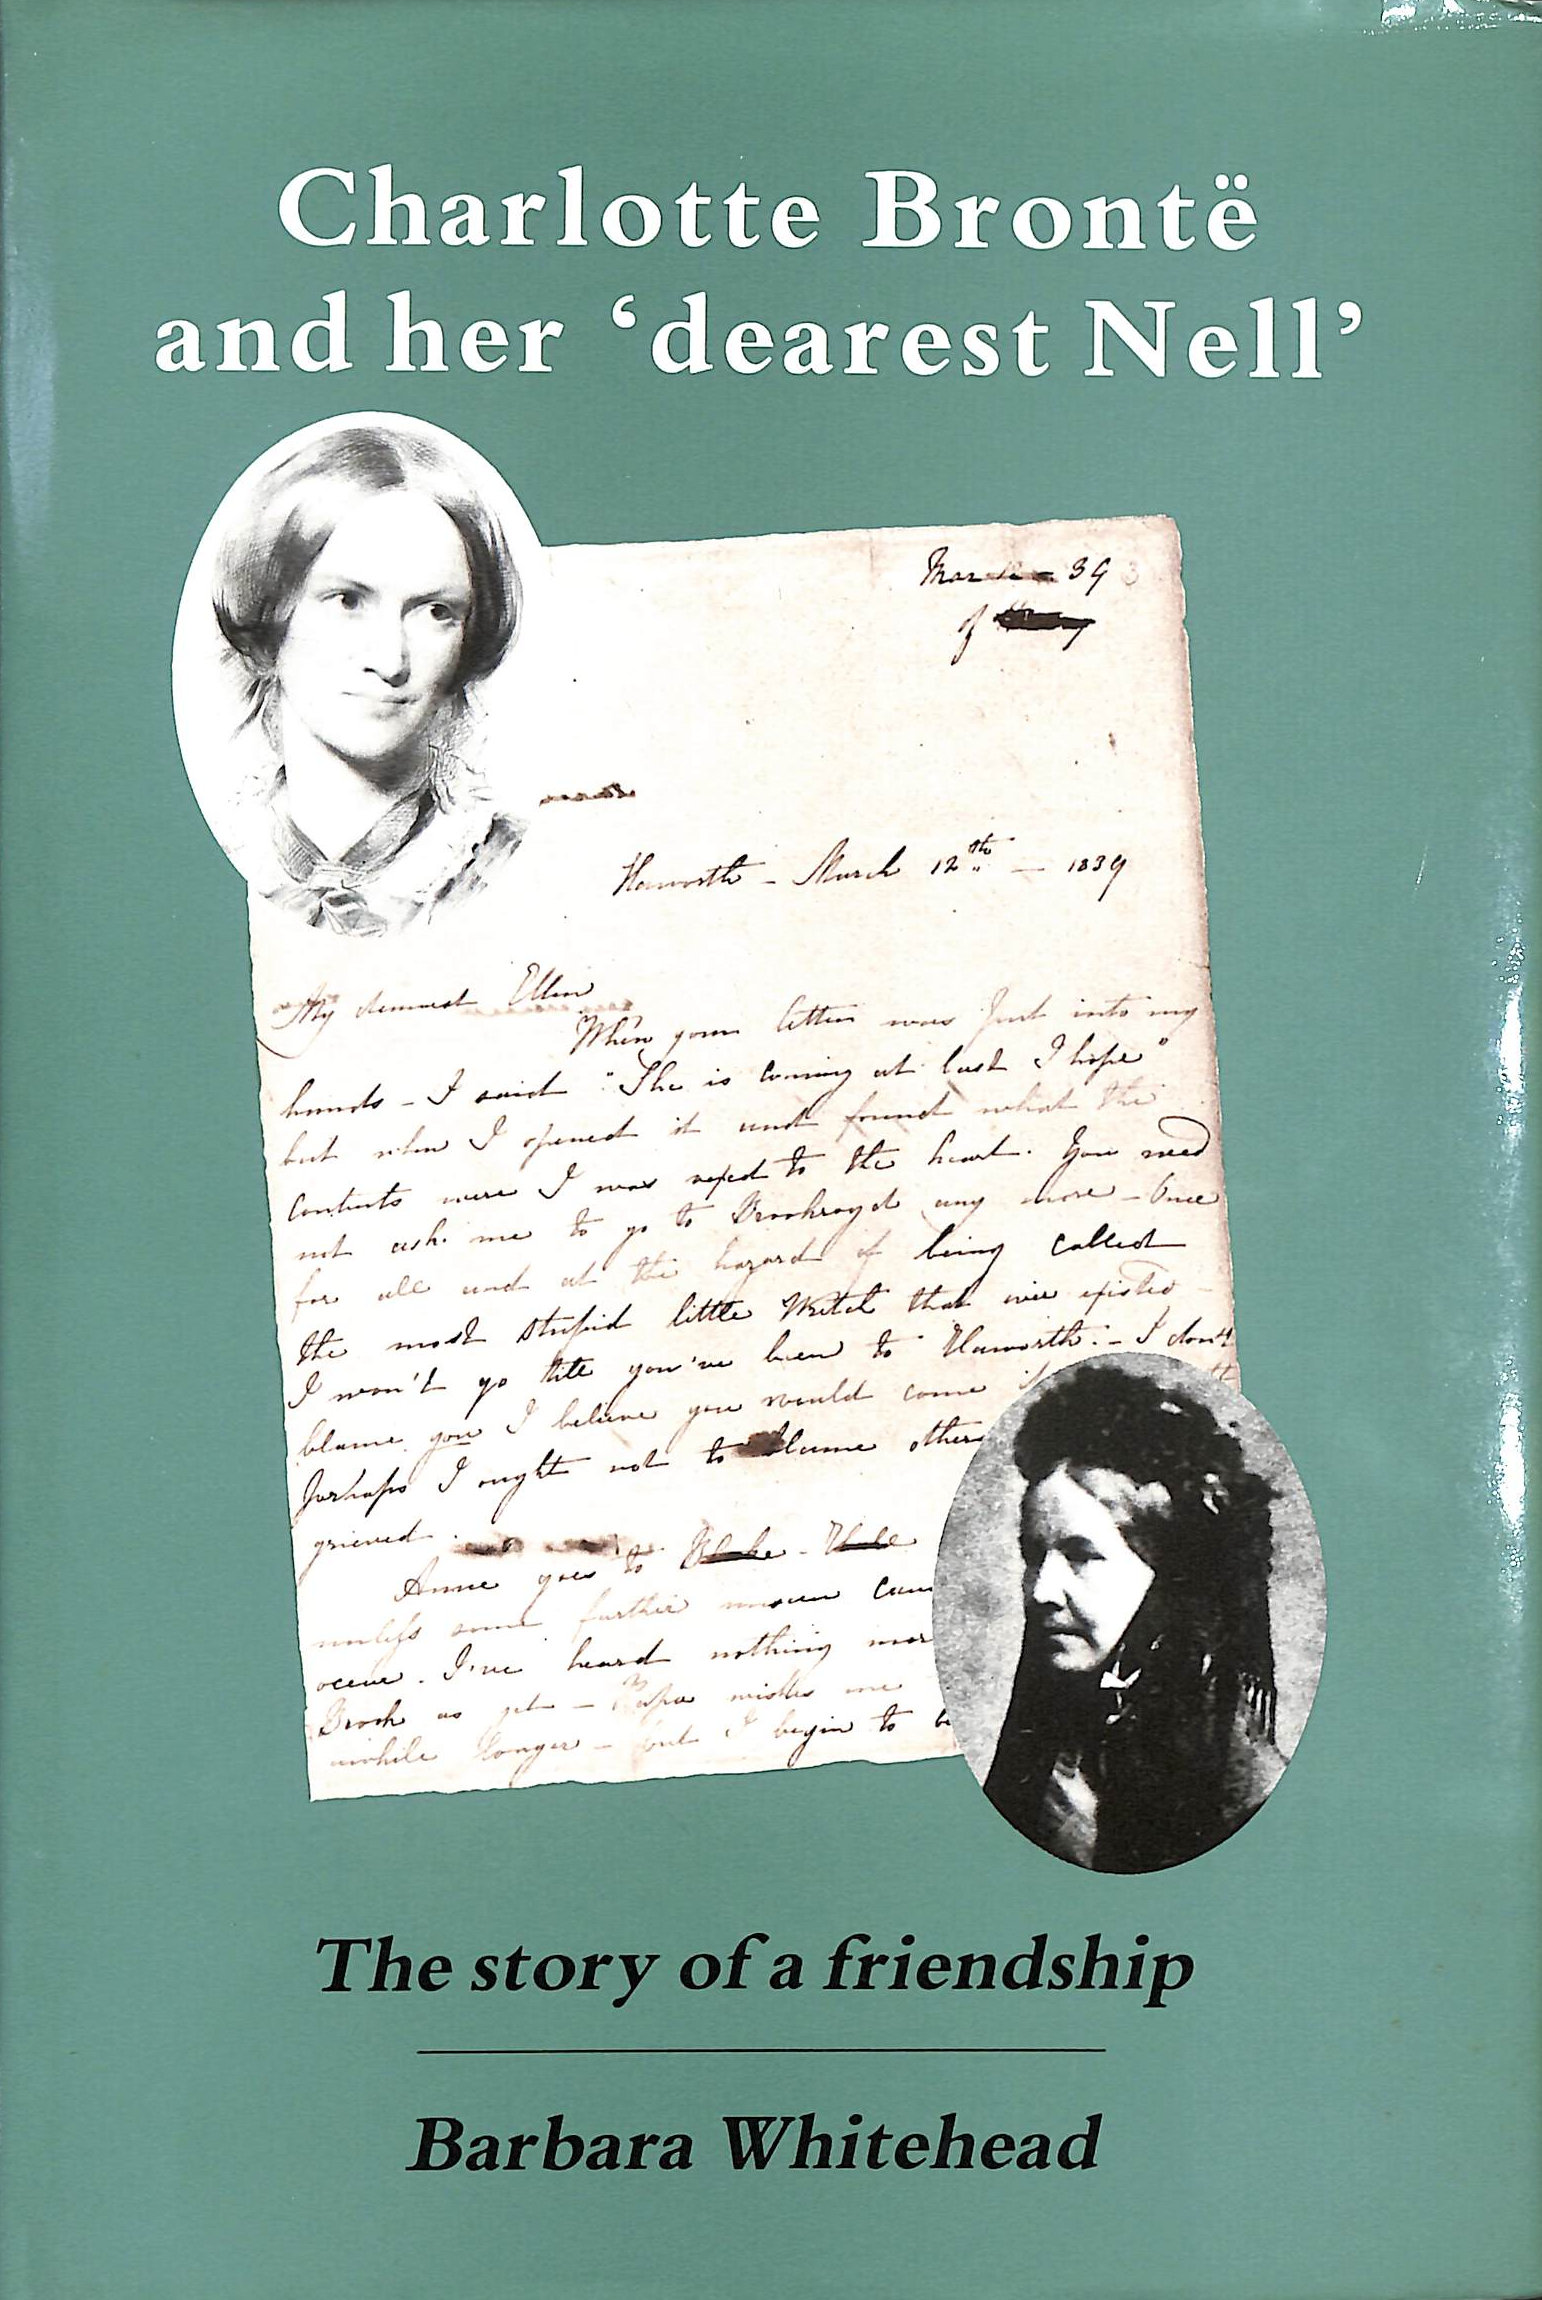 Charlotte Brontë
and her ‘dearest Nell’
Mar 12 – 39
of
Haworth – March 12th – 1839
My dearest Ellen
When your letter was put into my
hands – I said "She is coming at last I hope"
but when I opened it and found what the
contents were I was vexed to the heart. You need
not ask me to go to Brookroyd any more – Once
for all and at the hazard of being called
the most stupid little Wretch that ever existed –
I won't go till you've been to Haworth. – I don't
blame you I believe you would come if
perhaps I ought not to blame others
grieved.
Anne goes to Blake – Hall
unless some further unseen
occur. I've heard nothing
as yet – Papa wishes me
awhile longer – but I begin to
The story of a friendship
Barbara Whitehead